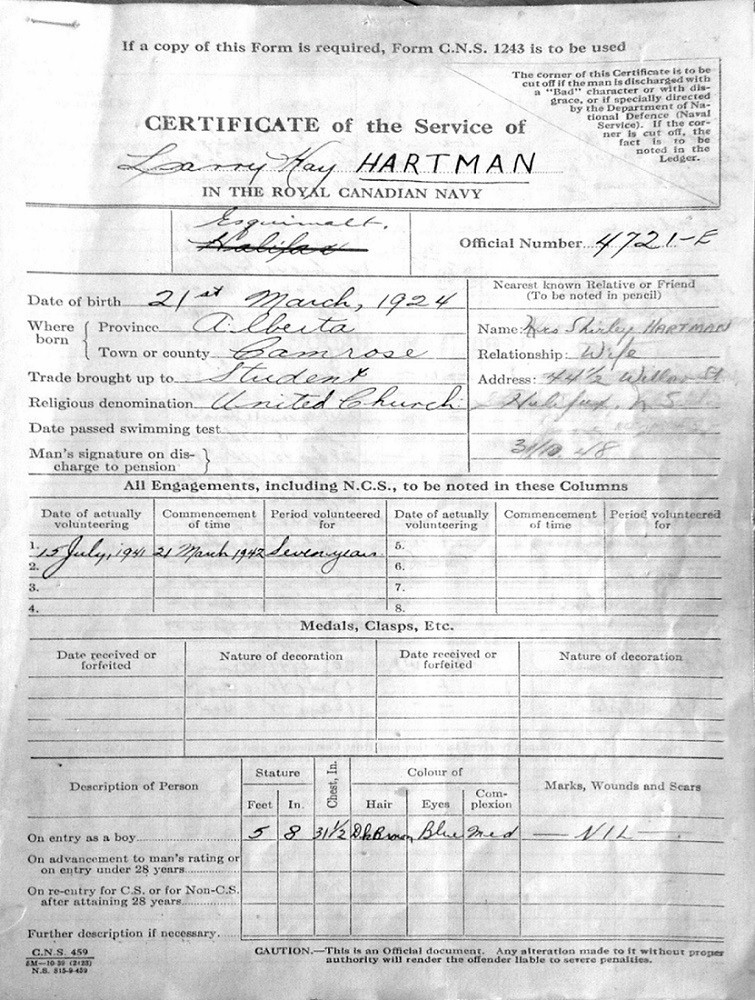 If a copy of this Form is required, Form C.N.S. 1243 is to be used
The corner of this Certificate is to be
cut off if the man is discharged with
a "Bad" character or with dis-
grace, or if specially directed
by the Department of Na-
tional Defence (Naval
Service). If the cor-
ner is cut off, the
fact is to be
noted in the
Ledger.
CERTIFICATE of the Service of
Larry Kay HARTMAN
IN THE ROYAL CANADIAN NAVY
Esquimalt.
Halifax
Official Number 4721-E
Date of birth 21st March, 1924
Where born { Province Alberta
Town or county Camrose
Trade brought up to Student
Religious denomination United Church
Date passed swimming test
Man's signature on dis-
charge to pension }
Nearest known Relative or Friend
(To be noted in pencil)
Name: Mrs Shirley HARTMAN
Relationship: Wife
Address: 44 1/2 St
Halifax, N.S.
31/10 48
All Engagements, including N.C.S., to be noted in these Columns
Date of actually volunteering Commencement of time Period volunteered for Date of actually volunteering Commencement of time Period volunteered for
1. 15 July, 1941 21 March 1942 Seven years 5.
2. 6.
3. 7.
4. 8.
Medals, Clasps, Etc.
Date received or forfeited Nature of decoration Date received or forfeited Nature of decoration
Description of Person Stature Chest, In. Colour of Marks, Wounds and Scars
Feet In. Hair Eyes Com-plexion
On entry as a boy 5 8 31 1/2 Dk Brown Blue Med — NIL —
On advancement to man's rating or
on entry under 28 years
On re-entry for C.S. or for Non-C.S.
after attaining 28 years
Further description if necessary.
C.N.S. 459
5M—10-39 (2123)
N.S. 815-9-459
CAUTION.—This is an Official document. Any alteration made to it without proper
authority will render the offender liable to severe penalties.